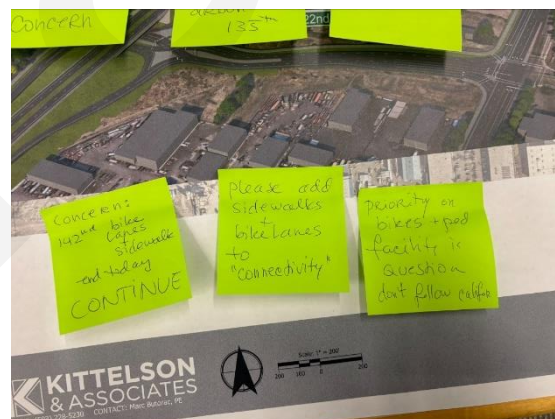 Concern
135th
22nd
Concern:
142nd bike
lanes
+
sidewalk
end today
CONTINUE
please add
sidewalks
+
bike lanes
to
"connectivity"
priority on
bikes + ped
facility is
question
don't follow
KITTELSON
& ASSOCIATES
228-5230 CONTACT: Marc Butorac, PE
Scale: 1" = 200'
200 100 0 200